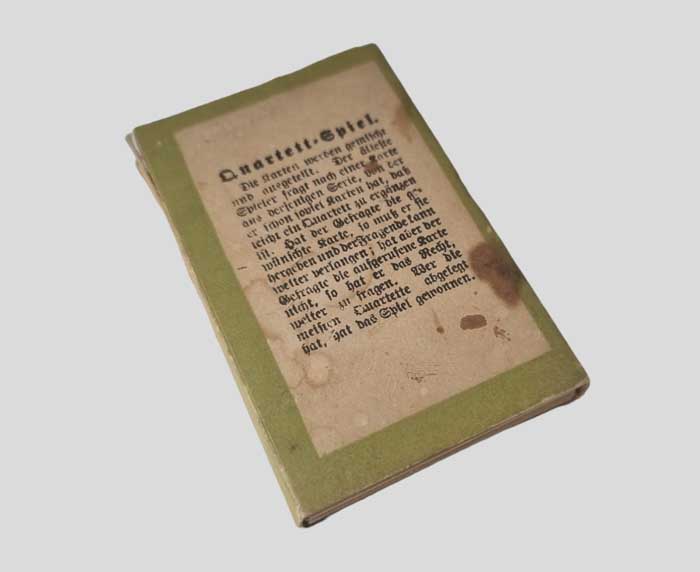 Quartett-Spiel.
Die Karten werden gemischt
und ausgeteilt. Der älteste
Spieler fragt nach einer Karte
aus derjenigen Serie, von der
er schon soviel Karten hat, daß
leicht ein Quartett zu ergänzen
ist. Hat der Gefragte die ge-
wünschte Karte, so muß er sie
hergeben und der Fragende kann
weiter verlangen; hat aber der
Gefragte die aufgerufene Karte
nicht, so hat er das Recht,
weiter zu fragen. Wer die
meisten Quartette abgelegt
hat, hat das Spiel gewonnen.